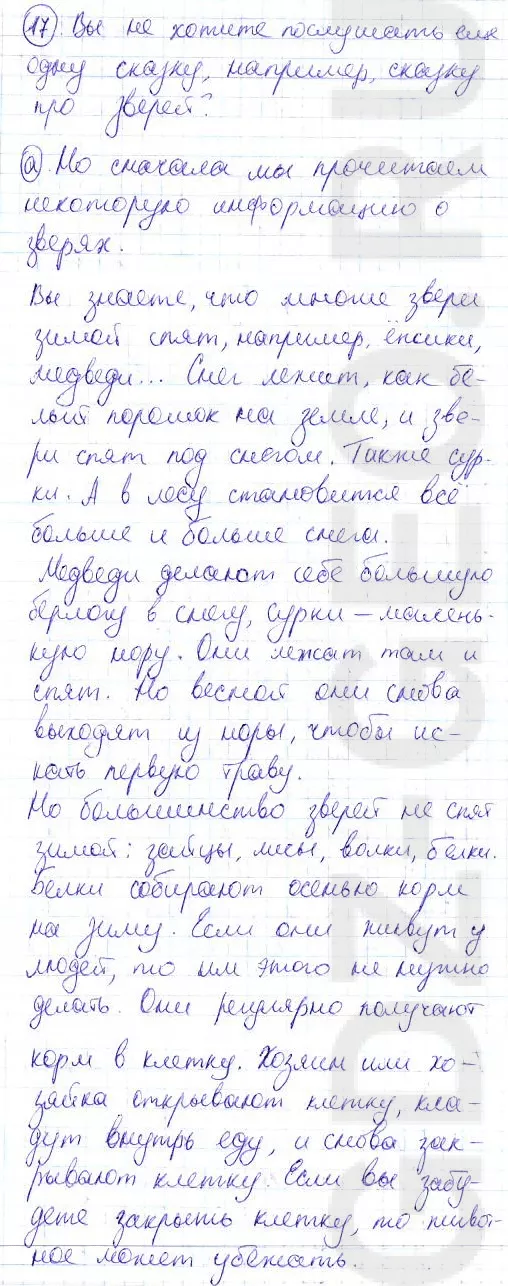 17. Вы не хотите послушать еще
одну сказку, например, сказку
про зверей?
а. Но сначала мы прочитаем
некоторую информацию о
зверях.
Вы знаете, что многие звери
зимой спят, например, ёжики,
медведи... Снег лежит, как бе-
лый порошок на земле, и зве-
ри спят под снегом. Также сур-
ки. А в лесу становится всё
больше и больше снега.
Медведи делают себе большую
берлогу в снегу, сурки – малень-
кую нору. Они лежат там и
спят. Но весной они снова
выходят из норы, чтобы ис-
кать первую траву.
Но большинство зверей не спят
зимой: зайцы, лисы, волки, белки.
Белки собирают осенью корм
на зиму. Если они живут у
людей, то им этого не нужно
делать. Они регулярно получают
корм в клетку. Хозяин или хо-
зяйка открывают клетку, кла-
дут внутрь еду, и снова зак-
рывают клетку. Если вы забу-
дете закрыть клетку, то живот-
ное может убежать.
GDZ-GEO.RU